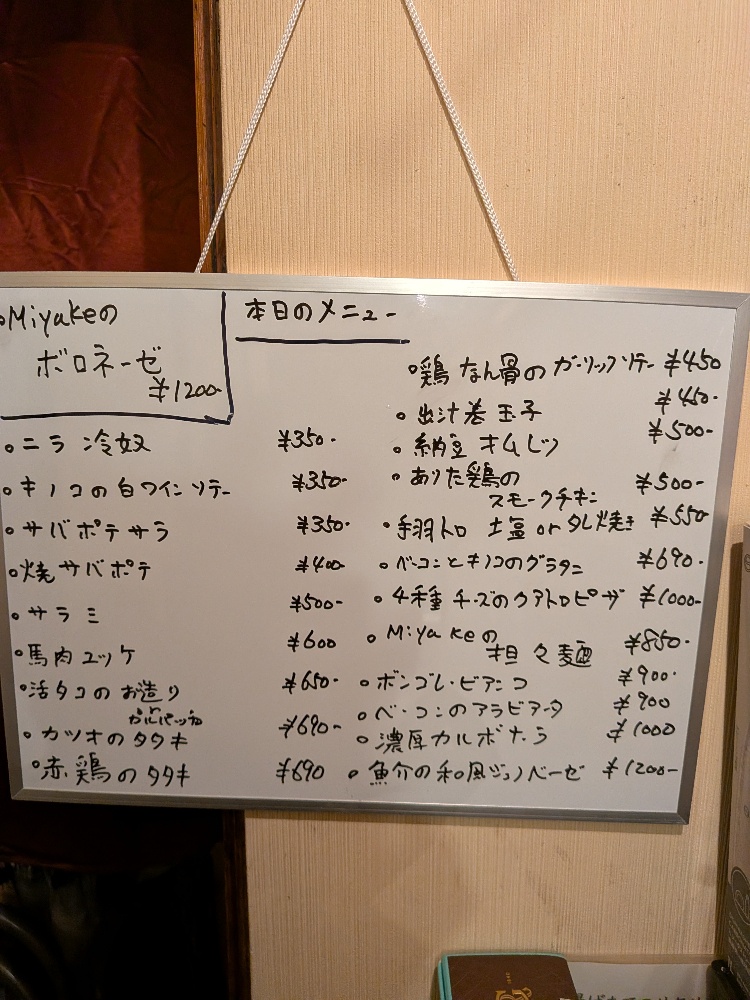 •Miyakeの
ボロネーゼ
¥1200-
本日のメニュー
•ニラ冷奴 ¥350-
•キノコの白ワインソテー ¥350-
•サバポテサラ ¥350-
•焼サバポテ ¥400-
•サラミ ¥500-
•馬肉ユッケ ¥600
•活タコのお造り ¥650-
or カルパッチョ
•カツオのタタキ ¥690-
•赤鶏のタタキ ¥690
•鶏なん骨のガーリックソテー ¥450
•出汁巻玉子 ¥450-
•納豆オムレツ ¥500-
•ありた鶏の
スモークチキン ¥500-
•手羽トロ 塩orタレ焼き ¥550-
•ベーコンとキノコのグラタン ¥690-
•4種チーズのクアトロピザ ¥1000-
•Miyakeの
担々麺 ¥850-
•ボンゴレ・ビアンコ ¥900-
•ベーコンのアラビアータ ¥900
•濃厚カルボナーラ ¥1000
•魚介の和風ジェノベーゼ ¥1200-